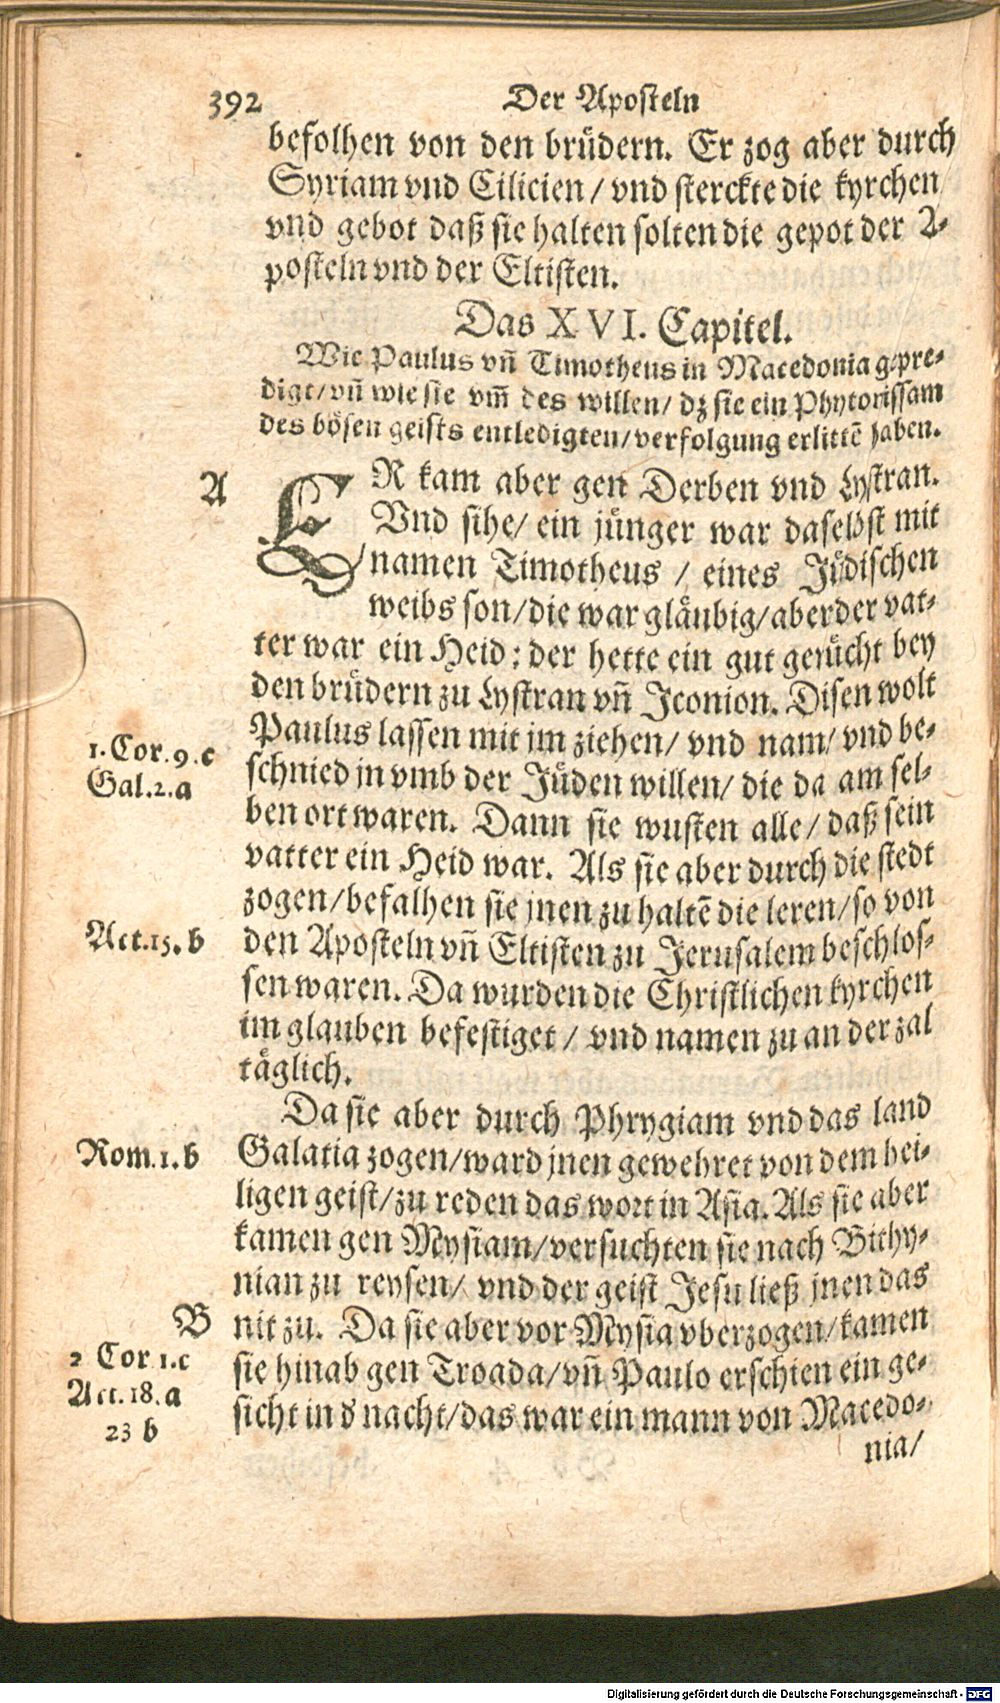 392 Der Aposteln
befolhen von den brüdern. Er zog aber durch
Syriam vnd Cilicien / vnd sterckte die kyrchen
vnd gebot daß sie halten solten die gepot der A-
posteln vnd der Eltisten.
Das XVI. Capitel.
Wie Paulus vñ Timotheus in Macedonia gepre-
digt/ vñ wie sie vm̃ des willen/ dz sie ein Phytonissam
des bösen geists entledigten/ verfolgung erlittē haben.
A
ER kam aber gen Derben vnd Lystran.
Vnd sihe/ ein jünger war daselbst mit
namen Timotheus / eines Jüdischen
weibs son/ die war gläubig/ aber der vat-
ter war ein Heid: der hette ein gut gerücht bey
den brüdern zu Lystran vñ Iconion. Disen wolt
Paulus lassen mit jm ziehen/ vnd nam/ vnd be-
1. Cor. 9. c
schnied jn vmb der Jüden willen/ die da am sel-
Gal. 2. a
ben ort waren. Dann sie wusten alle/ daß sein
vatter ein Heid war. Als sie aber durch die stedt
zogen/ befalhen sie jnen zu haltē die leren/ so von
Act. 15. b
den Aposteln vñ Eltisten zu Jerusalem beschlos-
sen waren. Da wurden die Christlichen kyrchen
im glauben befestiget / vnd namen zu an der zal
täglich.
Da sie aber durch Phrygiam vnd das land
Rom. 1. b
Galatia zogen/ ward jnen gewehret von dem hei-
ligen geist/ zu reden das wort in Asia. Als sie aber
kamen gen Mysiam/ versuchten sie nach Bithy-
nian zu reysen/ vnd der geist Jesu ließ jnen das
B
nit zu. Da sie aber vor Mysia vberzogen/ kamen
2 Cor 1. c
sie hinab gen Troada/ vñ Paulo erschien ein ge-
Act. 18. a
sicht in d' nacht/ das war ein mann von Macedo-
23 b
nia/
Digitalisierung gefördert durch die Deutsche Forschungsgemeinschaft - DFG